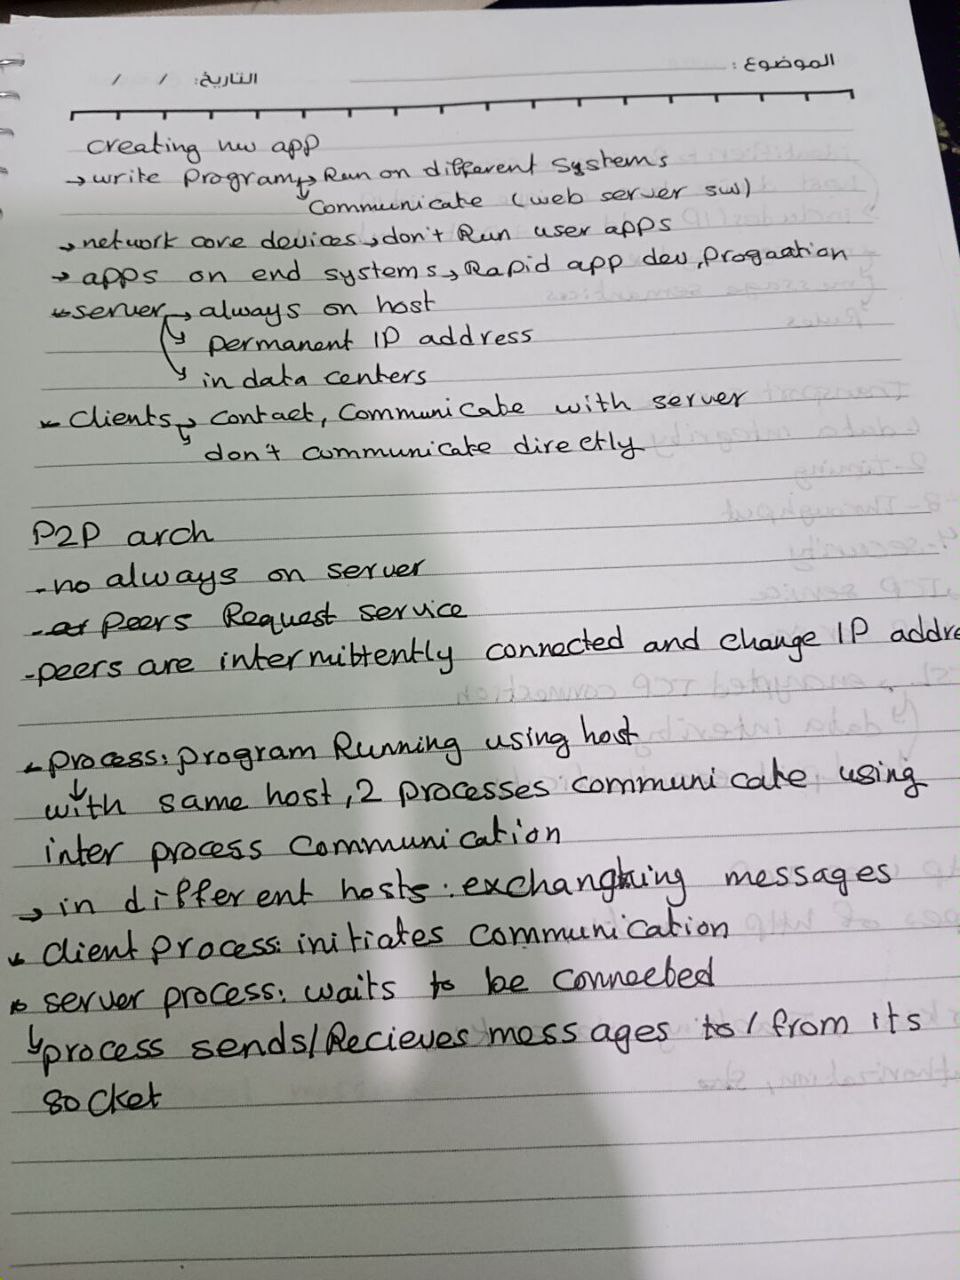 الموضوع :
التاريخ: / /
creating nw app
→ write program → Run on different systems
↳ Communicate (web server sw)
→ network core devices → don't Run user apps
→ apps on end systems → Rapid app dev, Progaation
* server → always on host
↳ permanent IP address
↳ in data centers
* Clients → contact, Communicate with server
↳ don't communicate directly
P2P arch
- no always on server
- peers Request service
- peers are intermittently connected and change IP addre
* process: program Running using host
with same host, 2 processes communicate using
inter process Communication
→ in different hosts: exchanging messages
* client process: initiates communication
* server process: waits to be connected
↳ process sends/Recieves messages to/from its
socket